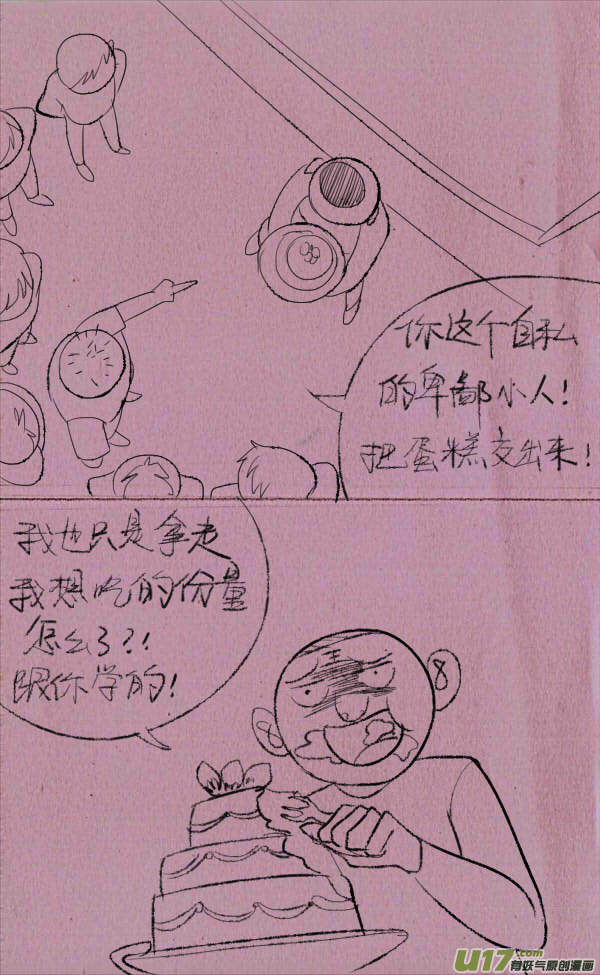 你这个自私
的卑鄙小人！
把蛋糕交出来！
我也只是拿走
我想吃的份量
怎么了？！
跟你学的！
U17.com
有妖气原创漫画